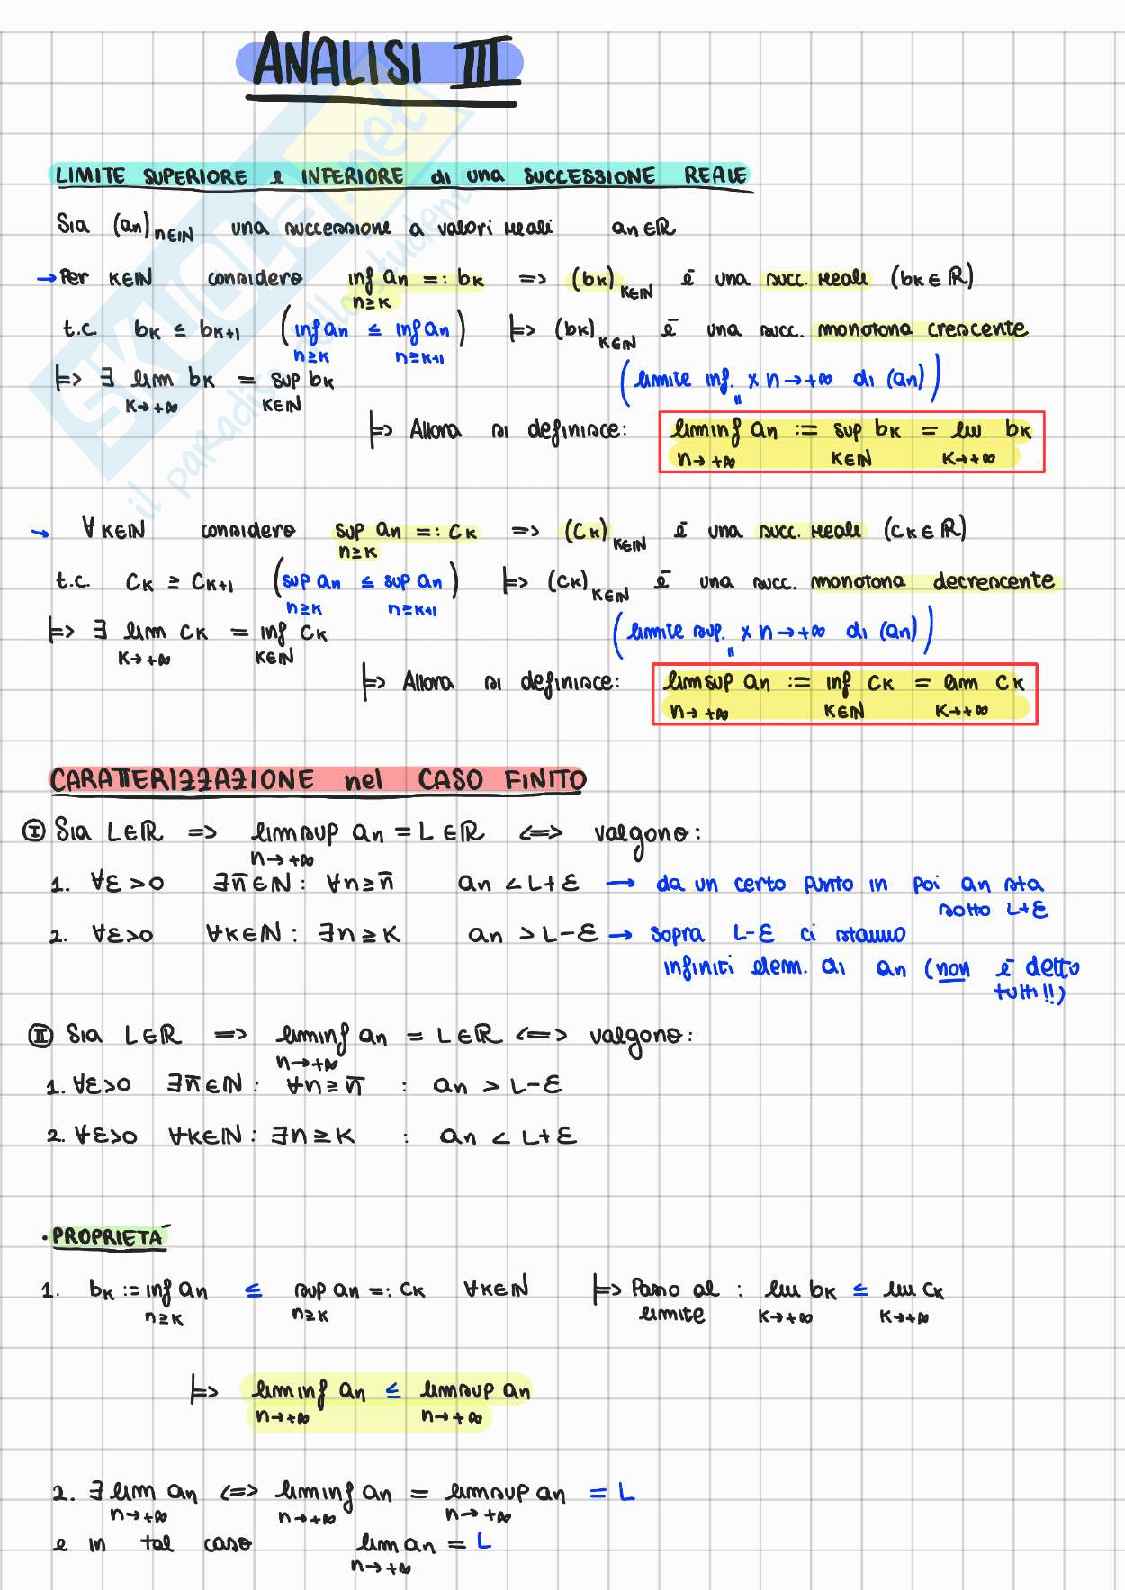 ANALISI III
LIMITE SUPERIORE e INFERIORE di una SUCCESSIONE REALE
Sia (an)n∈ℕ una successione a valori reali an∈ℝ
→ Per K∈ℕ considero inf an =: bK => (bK)K∈ℕ è una succ. reali (bK∈ℝ)
n≥K
t.c. bK ≤ bK+1 (inf an ≤ inf an) |=> (bK)K∈ℕ è una succ. monotona crescente
n≥K n≥K+1
|=> ∃ lim bK = sup bK (limite inf. x n→+∞ di (an))
K→+∞ K∈ℕ "
|=> Allora si definisce: liminf an := sup bK = lim bK
n→+∞ K∈ℕ K→+∞
→ ∀K∈ℕ considero sup an =: CK => (CK)K∈ℕ è una succ. reali (CK∈ℝ)
n≥K
t.c. CK ≥ CK+1 (sup an ≤ sup an) |=> (CK)K∈ℕ è una succ. monotona decrescente
n≥K n≥K+1
|=> ∃ lim CK = inf CK (limite sup. x n→+∞ di (an))
K→+∞ K∈ℕ "
|=> Allora si definisce: limsup an := inf CK = lim CK
n→+∞ K∈ℕ K→+∞
CARATTERIZZAZIONE nel CASO FINITO
Ⓘ Sia L∈ℝ => limsup an = L∈ℝ <=> valgono:
n→+∞
1. ∀ε>0 ∃n̄∈ℕ: ∀n≥n̄ an < L+ε → da un certo punto in poi an sta
sotto L+ε
2. ∀ε>0 ∀K∈ℕ: ∃n≥K an > L-ε → sopra L-ε ci stanno
infiniti elem. di an (non è detto
tutti!!)
Ⅱ Sia L∈ℝ => liminf an = L∈ℝ <=> valgono:
n→+∞
1. ∀ε>0 ∃n̄∈ℕ: ∀n≥n̄ : an > L-ε
2. ∀ε>0 ∀K∈ℕ: ∃n≥K : an < L+ε
• PROPRIETÀ
1. bK := inf an ≤ sup an =: CK ∀K∈ℕ |=> Passo al : lim bK ≤ lim CK
n≥K n≥K limite K→+∞ K→+∞
|=> liminf an ≤ limsup an
n→+∞ n→+∞
2. ∃ lim an <=> liminf an = limsup an = L
n→+∞ n→+∞ n→+∞
e in tal caso lim an = L
n→+∞
SKUOLA.net